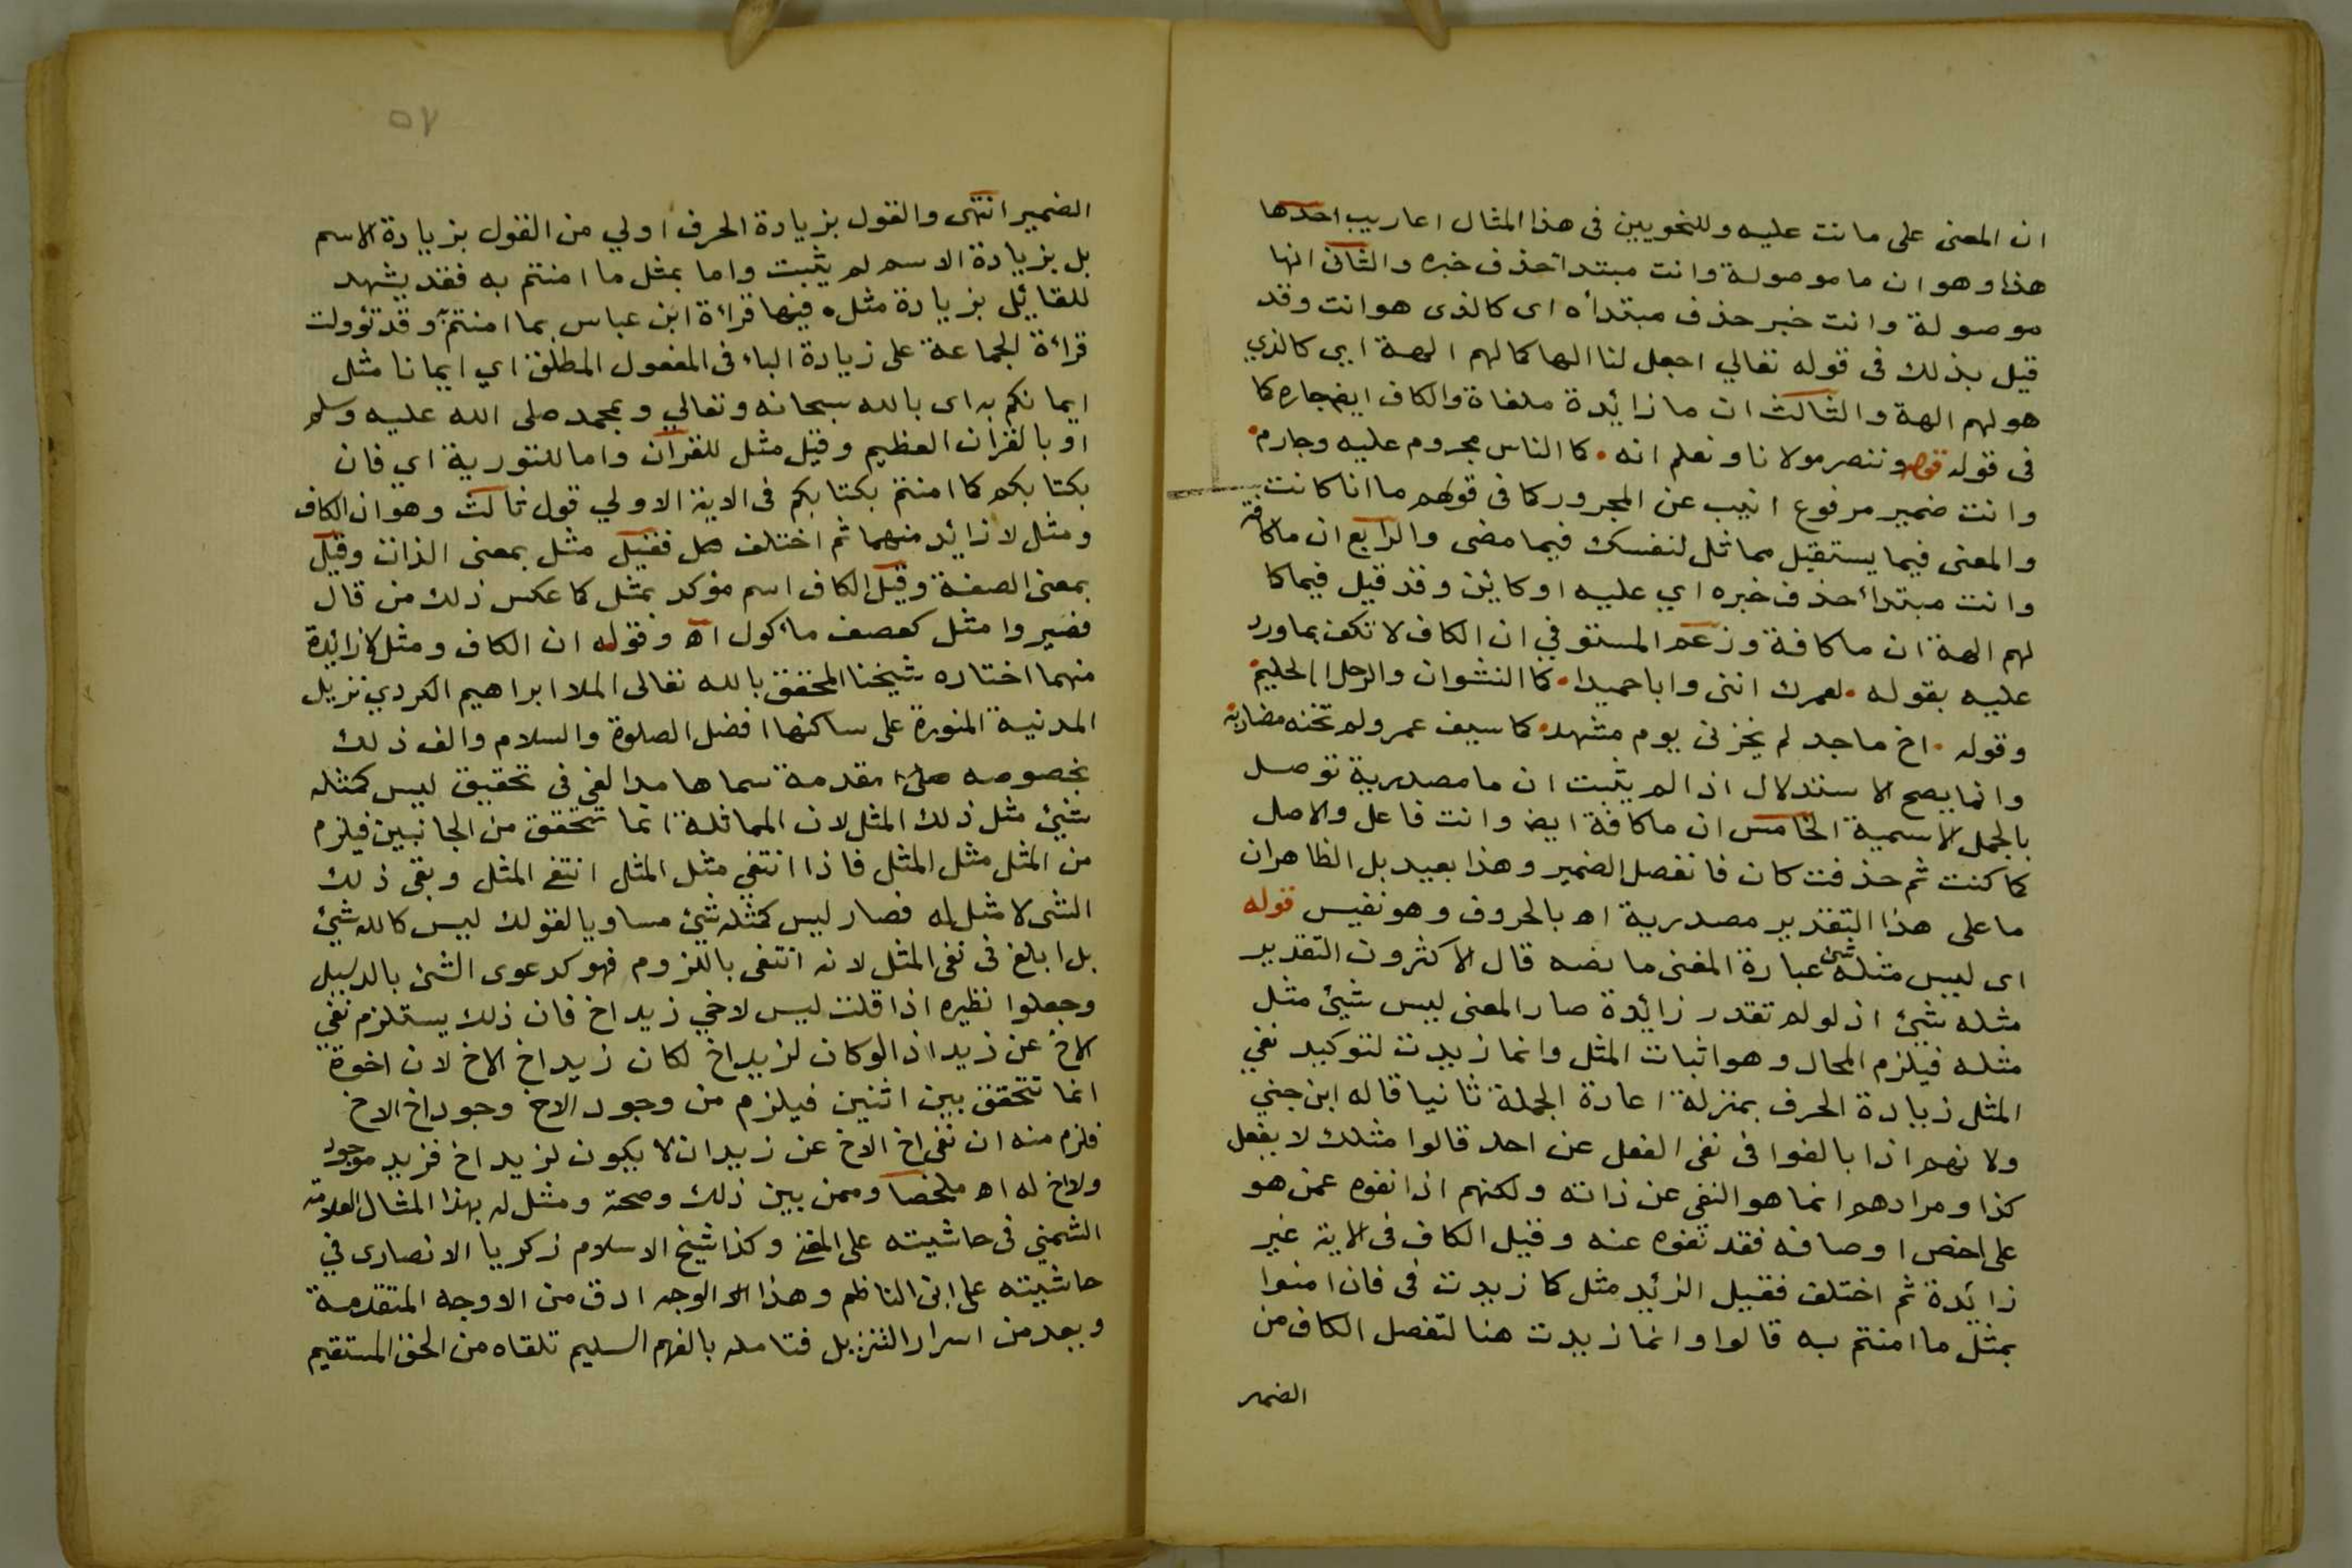 ان المعنى على ما نت عليه وللنحويين فى هذا المثال اعاريب احدها
هذا وهو ان ما موصولة وانت مبتدأ حذف خبره والثانى انها
موصولة وانت خبر حذف مبتدأه اى كالذى هو انت وقد
قيل بذلك فى قوله تعالي اجعل لنا الها كما لهم الهة ايى كالذي
هو لهم الهة والثالث ان ما زائدة ملغاة والكاف ايض جاره كما
فى قوله وننصر مولانا ونعلم انه كما الناس مجروم عليه وجارم
وانت ضمير مرفوع انيب عن المجرور كما فى قولهم ما انا كانت
والمعنى فيما يستقبل مماثل لنفسك فيما مضى والرابع ان ما كافة
وانت مبتدأ حذف خبره اي عليه او كائن وقد قيل فيما كما
لهم الهة ان ما كافة وزعم المستوفي ان الكاف لا تكف بما ورد
عليه بقوله لعمرك اننى وابا حميدا كما النشوان والرجل الحليم
وقوله اخ ماجد لم يخزنى يوم مشهد كما سيف عمرو لم تخنه مضاربه
وانما يصح الاستدلال اذا لم يثبت ان ما مصدرية توصل
بالجمل الاسمية الخامس ان ما كافة ايض وانت فاعل والاصل
كما كنت ثم حذفت كان فانفصل الضمير وهذا بعيد بل الظاهر ان
ما على هذا التقدير مصدرية اه بالحروف وهو نفيس قوله
اى ليس مثله شئ عبارة المغنى ما نصه قال الاكثرون التقدير
مثله شيئ اذ لو لم تقدر زائدة صار المعنى ليس شيئ مثل
مثله فيلزم المحال وهو اثبات المثل وانما زيدت لتوكيد نفي
المثل زيادة الحرف بمنزلة اعادة الجملة ثانيا قاله ابن جني
ولانهم اذا بالغوا فى نفى الفعل عن احد قالوا مثلك لا يفعل
كذا ومرادهم انما هو النفى عن ذاته ولكنهم اذا نفوه عمن هو
على اخص اوصافه فقد نفوه عنه وقيل الكاف فى الاية غير
زائدة ثم اختلف فقيل الزئد مثل كما زيدت فى فان امنوا
بمثل ما امنتم به قالوا وانما زيدت هنا لتفصل الكاف من
الضمير
٥٧
الضمير انتهى والقول بزيادة الحرف اولي من القول بزيادة الاسم
بل بزيادة الاسم لم يثبت واما بمثل ما امنتم به فقد يشهد
للقائل بزيادة مثل فيها قراءة ابن عباس بما امنتم به وقد تؤولت
قراءة الجماعة على زيادة الباء فى المفعول المطلق اي ايمانا مثل
ايمانكم به اى بالله سبحانه وتعالي وبمحمد صلى الله عليه وسلم
او بالقرآن العظيم وقيل مثل للقرآن واما للتورية اي فان
بكتابكم كما امنتم بكتابكم فى الاية الاولي قول ثالث وهو ان الكاف
ومثل لا زائد منهما ثم اختلف فقيل مثل بمعنى الذات وقيل
بمعنى الصفة وقيل الكاف اسم مؤكد بمثل كما عكس ذلك من قال
فصيروا مثل كعصف مأكول اه وقوله ان الكاف ومثل لا زائدة
منهما اختاره شيخنا المحقق بالله تعالى الملا ابراهيم الكردي نزيل
المدنية المنورة على ساكنها افضل الصلوة والسلام والف ذلك
بخصوصه مقدمة سماها مدا الفى فى تحقيق ليس كمثله
شيئ مثل ذلك المثل لان المماثلة انما تتحقق من الجانبين فيلزم
من المثل مثل المثل فاذا انتفي مثل المثل انتفى المثل وبقى ذلك
الشى لا مثل له فصار ليس كمثله شيئ مساويا لقولك ليس كالله شيئ
بل ابلغ فى نفى المثل لانه انتفى باللزوم فهو كدعوى الشئ بالدليل
وجعلوا نظيره اذا قلت ليس لاخي زيد اخ فان ذلك يستلزم نفي
الاخ عن زيد اذ لو كان لزيد اخ لكان زيد اخ الاخ لان اخوة
انما تتحقق بين اثنين فيلزم من وجود الاخ وجود اخ الاخ
فلزم منه ان نفى اخ الاخ عن زيد ان لا يكون لزيد اخ فزيد موجود
ولا اخ له اه ملخصا وممن بين ذلك وصحته ومثل له بهذا المثال العلامة
الشمني فى حاشيته على المغنى وكذا شيخ الاسلام زكريا الانصارى في
حاشيته على ابن الناظم وهذا الوجه ادق من الاوجه المتقدمة
ويعد من اسرار التنزيل فتامله بالفهم السليم تلقاه من الحق المستقيم